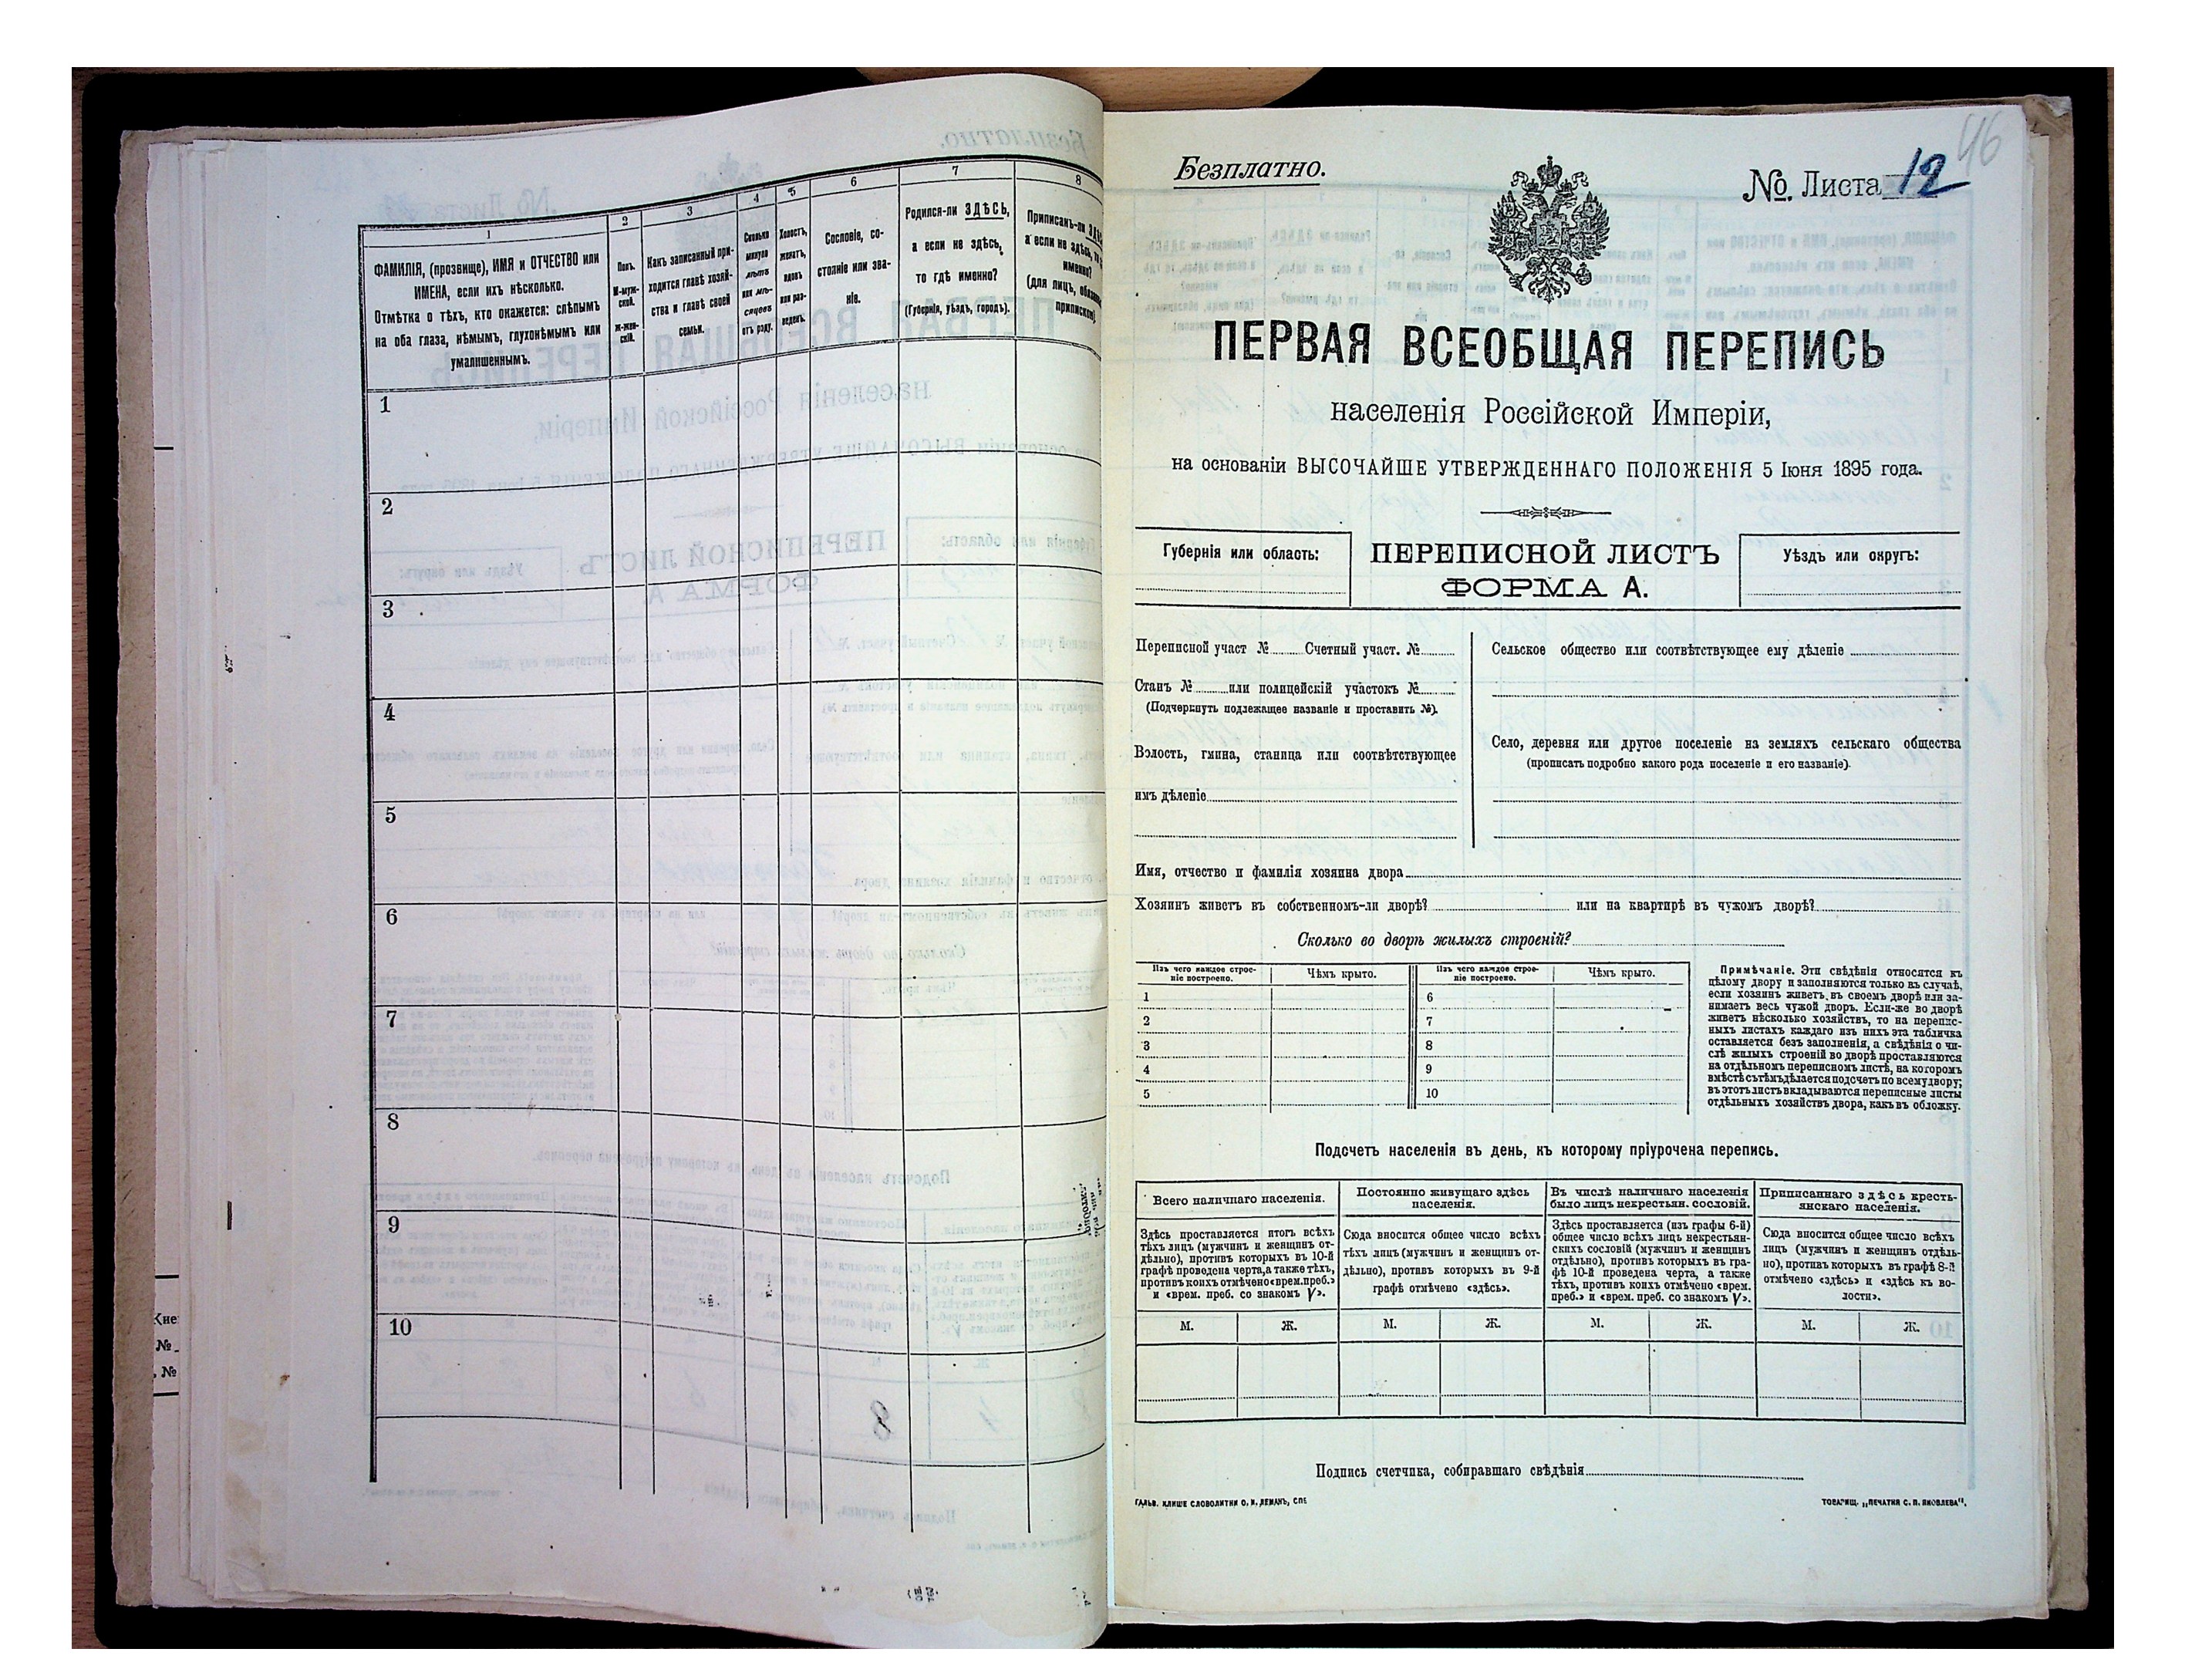 1
2
3
4
5
6
7
8
ФАМИЛІЯ, (прозвище), ИМЯ и ОТЧЕСТВО или
ИМЕНА, если ихъ нѣсколько.
Отмѣтка о тѣхъ, кто окажется: слѣпымъ
на оба глаза, нѣмымъ, глухонѣмымъ или
умалишеннымъ.
Полъ.
М-муж-
ской.
Ж-жен-
скій.
Какъ записанный при-
ходится главѣ хозяй-
ства и главѣ своей
семьи.
Сколько
минуло
лѣтъ
или мѣ-
сяцевъ
отъ роду.
Холостъ,
женатъ,
вдовъ
или раз-
веденъ.
Сословіе, со-
стояніе или зва-
ніе.
Родился-ли ЗДѢСЬ,
а если не здѣсь,
то гдѣ именно?
(Губернія, уѣздъ, городъ).
Приписанъ-ли
а если не здѣсь,
именно?
(для лицъ,
1
2
3
4
5
6
7
8
9
10
№
№
Безплатно.
46
№. Листа 12
ПЕРВАЯ ВСЕОБЩАЯ ПЕРЕПИСЬ
населенія Россійской Имперіи,
на основаніи ВЫСОЧАЙШЕ УТВЕРЖДЕННАГО ПОЛОЖЕНІЯ 5 Іюня 1895 года.
Губернія или область:
ПЕРЕПИСНОЙ ЛИСТЪ
ФОРМА А.
Уѣздъ или округъ:
Переписной участ № Счетный участ. №
Станъ № или полицейскій участокъ №
(Подчеркнуть подлежащее названіе и проставить №).
Волость, гмина, станица или соотвѣтствующее
имъ дѣленіе
Сельское общество или соотвѣтствующее ему дѣленіе
Село, деревня или другое поселеніе на земляхъ сельскаго общества
(прописать подробно какого рода поселеніе и его названіе).
Имя, отчество и фамилія хозяина двора
Хозяинъ живетъ въ собственномъ-ли дворѣ? или на квартирѣ въ чужомъ дворѣ?
Сколько во дворѣ жилыхъ строеній?
Изъ чего каждое строе-
ніе построено.
Чѣмъ крыто.
Изъ чего каждое строе-
ніе построено.
Чѣмъ крыто.
1
2
3
4
5
6
7
8
9
10
Примѣчаніе. Эти свѣдѣнія относятся къ
цѣлому двору и заполняются только въ случаѣ,
если хозяинъ живетъ, въ своемъ дворѣ или за-
нимаетъ весь чужой дворъ. Если-же во дворѣ
живетъ нѣсколько хозяйствъ, то на перепис-
ныхъ листахъ каждаго изъ нихъ эта табличка
оставляется безъ заполненія, а свѣдѣнія о чи-
слѣ жилыхъ строеній во дворѣ проставляются
на отдѣльномъ переписномъ листѣ, на которомъ
вмѣстѣ съ тѣмъ дѣлается подсчетъ по всему двору;
въ этотъ листъ вкладываются переписные листы
отдѣльныхъ хозяйствъ двора, какъ въ обложку.
Подсчетъ населенія въ день, къ которому пріурочена перепись.
Всего наличнаго населенія.
Здѣсь проставляется итогъ всѣхъ
тѣхъ лицъ (мужчинъ и женщинъ от-
дѣльно), противъ которыхъ въ 10-й
графѣ проведена черта, а также тѣхъ,
противъ коихъ отмѣчено «врем. преб.»
и «врем. преб. со знакомъ V».
Постоянно живущаго здѣсь
населенія.
Сюда вносится общее число всѣхъ
тѣхъ лицъ (мужчинъ и женщинъ от-
дѣльно), противъ которыхъ въ 9-й
графѣ отмѣчено «здѣсь».
Въ числѣ наличнаго населенія
было лицъ некрестьян. сословій.
Здѣсь проставляется (изъ графы 6-й)
общее число всѣхъ лицъ некрестьян-
скихъ сословій (мужчинъ и женщинъ
отдѣльно), противъ которыхъ въ гра-
фѣ 10-й проведена черта, а также
тѣхъ, противъ коихъ отмѣчено «врем.
преб.» и «врем. преб. со знакомъ V».
Приписаннаго здѣсь кресть-
янскаго населенія.
Сюда вносится общее число всѣхъ
лицъ (мужчинъ и женщинъ отдѣль-
но), противъ которыхъ въ графѣ 8-й
отмѣчено «здѣсь» и «здѣсь къ во-
лости».
М. Ж. М. Ж. М. Ж. М. Ж.
Подпись счетчика, собиравшаго свѣдѣнія
ГАЛЬВ. КЛИШЕ СЛОВОЛИТНИ О. И. ЛЕМАНЪ, СПБ
ТОВАРИЩ. „ПЕЧАТНЯ С. П. ЯКОВЛЕВА".